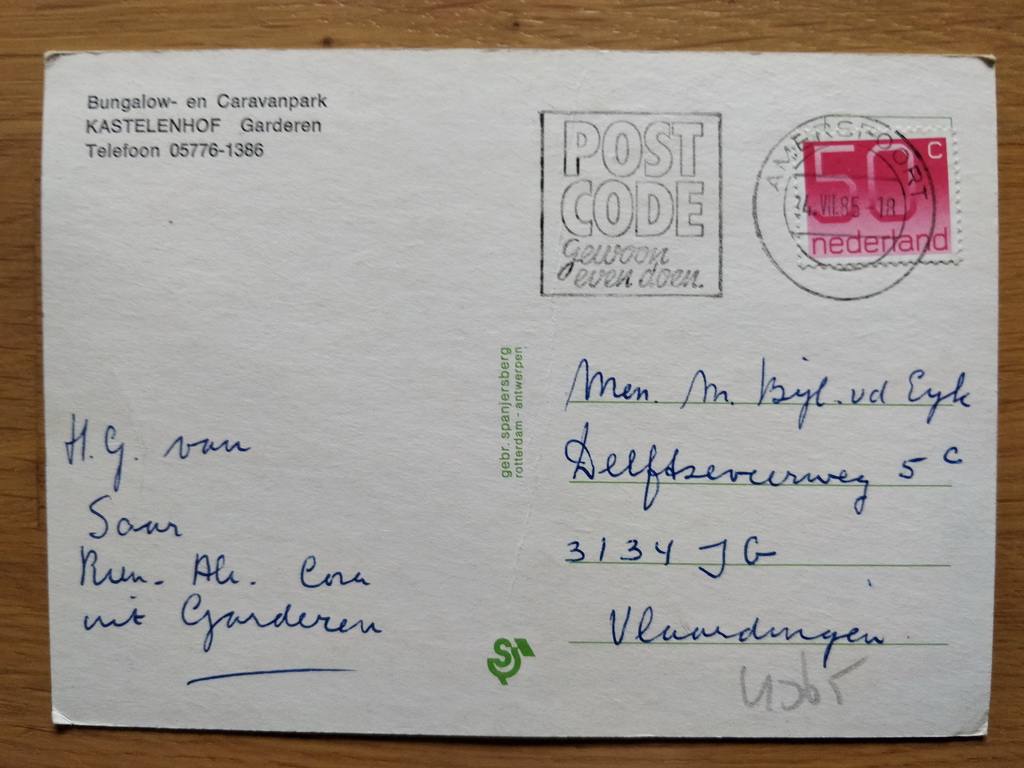 Bungalow- en Caravanpark
KASTELENHOF Garderen
Telefoon 05776-1386
POST
CODE
gewoon
even doen.
AMERSFOORT
24.VII.85-18
50 c
nederland
gebr. spanjersberg
rotterdam - antwerpen
H.G. van
Saar
Rien. Ali. Cora
uit Garderen
Men. M. Bijl. vd Eyk
Delftseveerweg 5 c
3134 JG
Vlaardingen
S